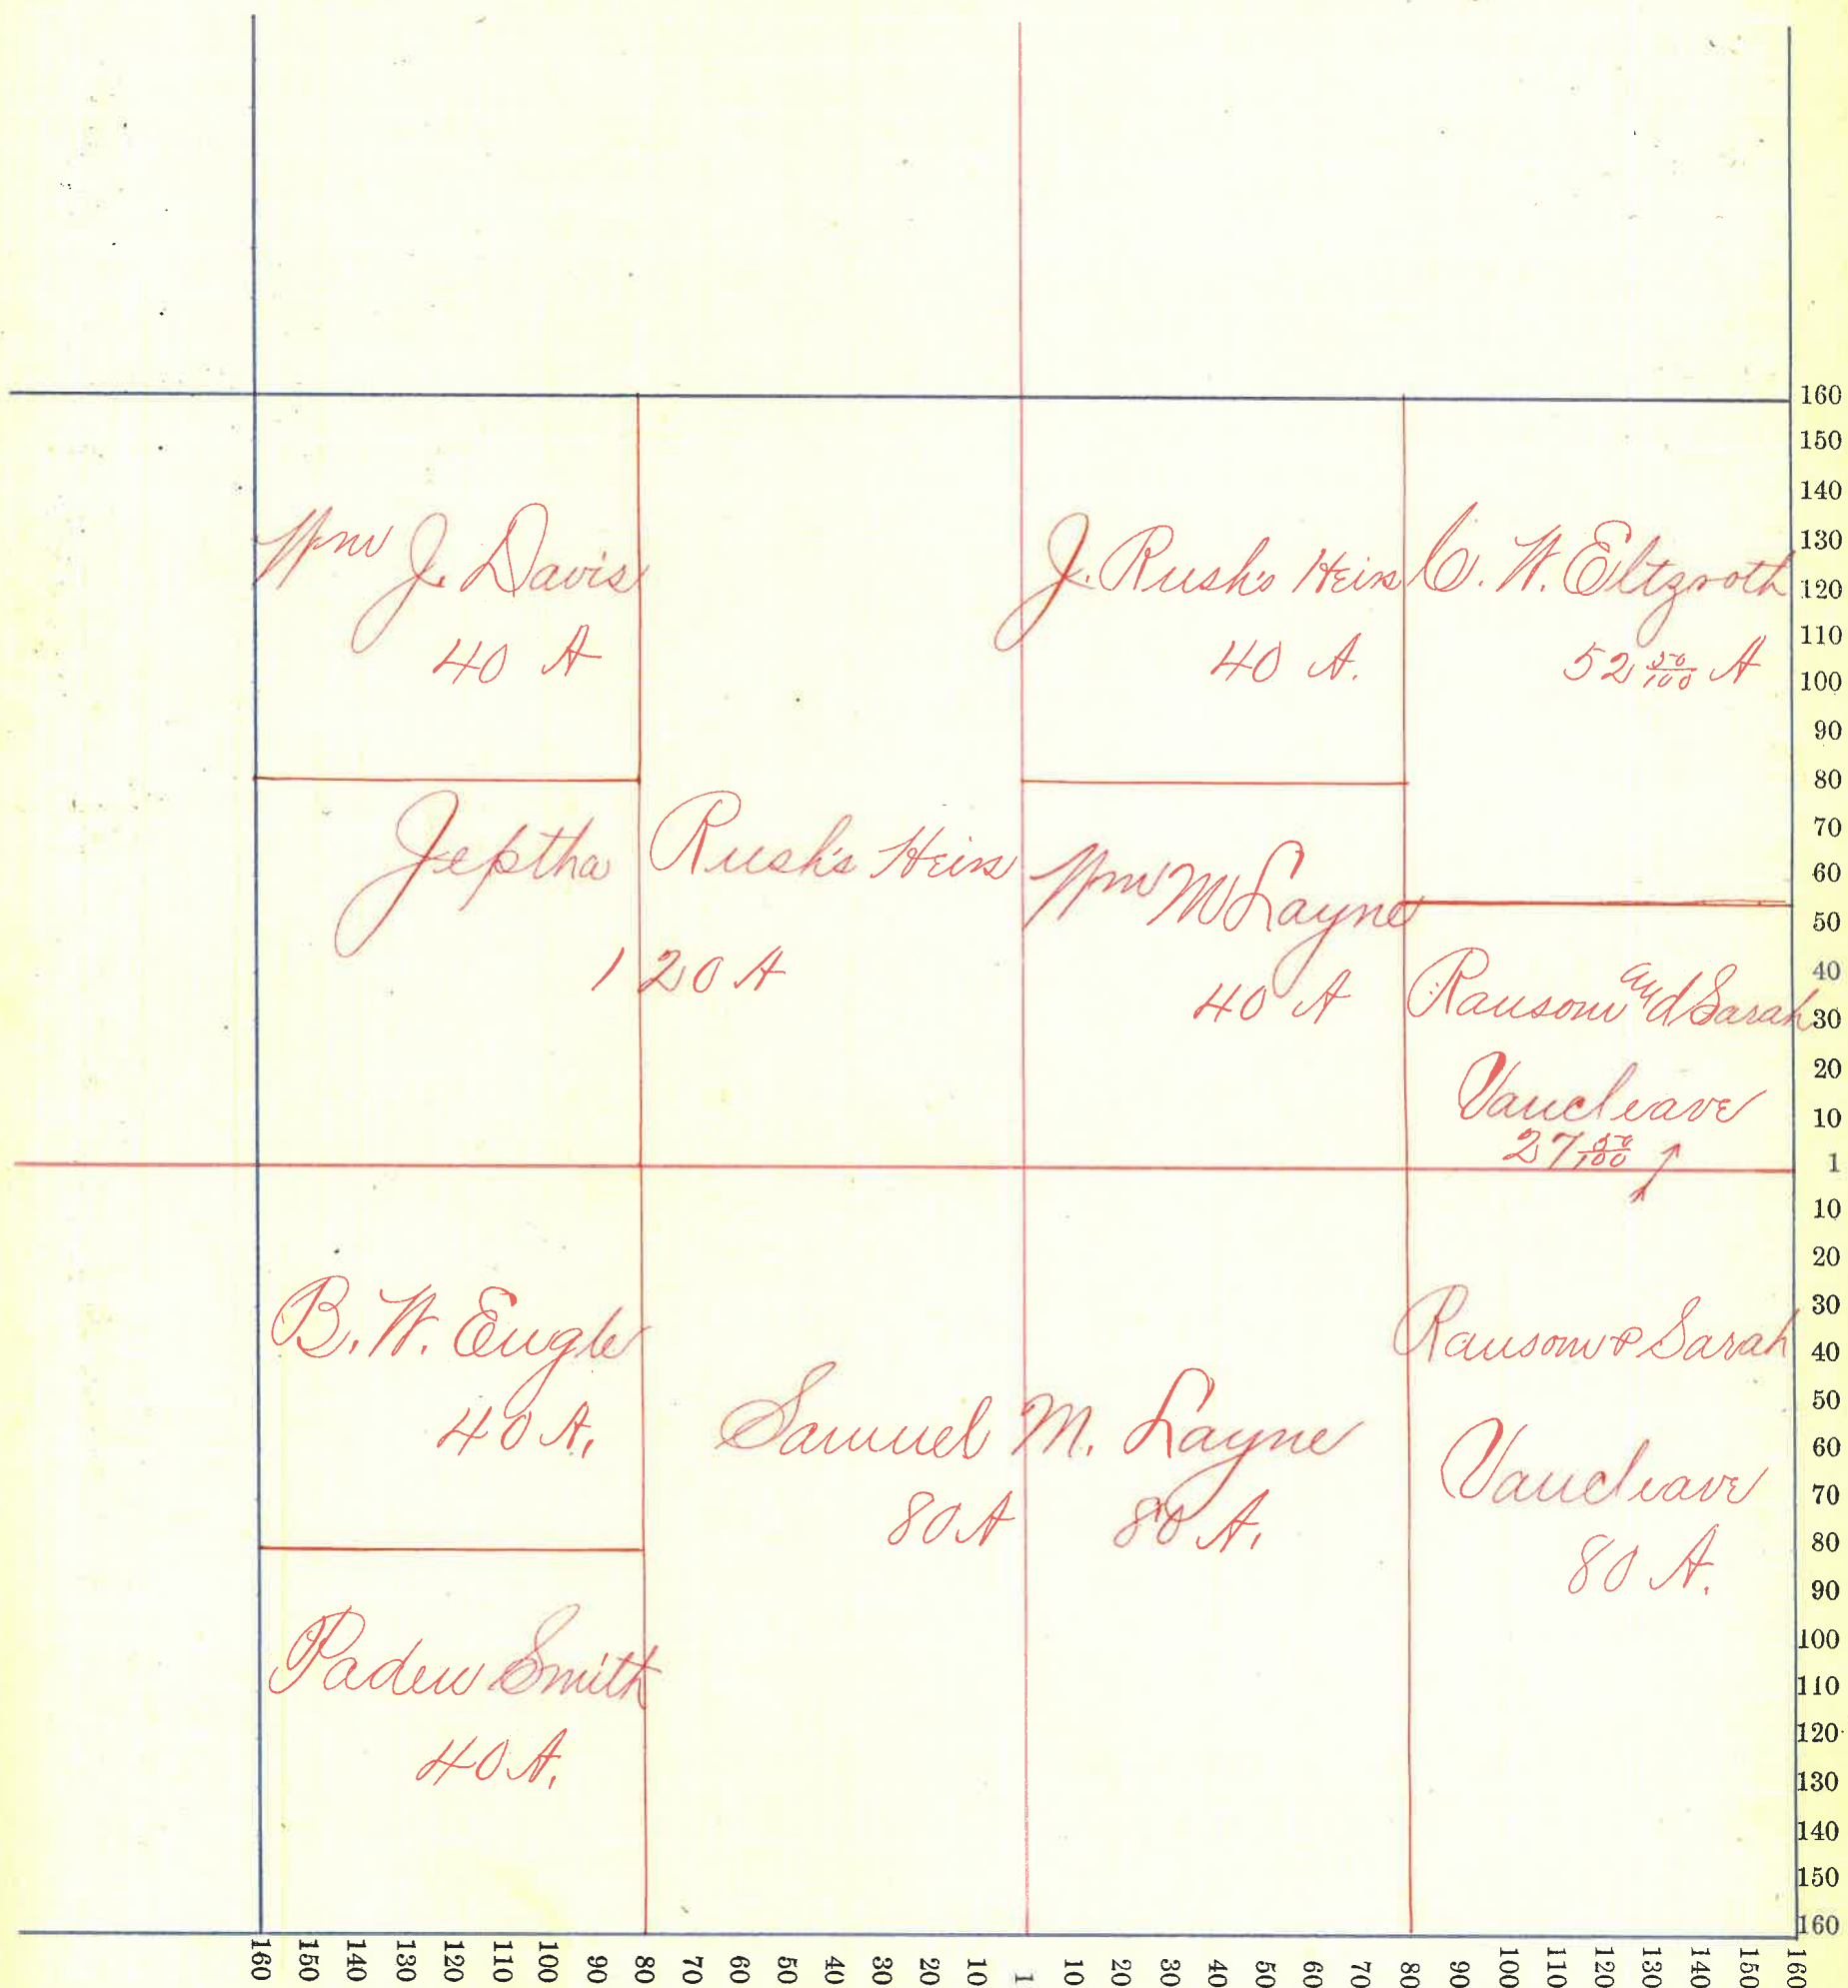 Wm J. Davis
40 A
J. Rush's Heirs
40 A.
C. W. Eltzroth
52 50/100 A
Jeptha Rush's Heirs
120 A
Wm M Layne
40 A
Ransom and Sarah
Vancleave
27 50/100
B. W. Engle
40 A.
Samuel M. Layne
80 A 80 A.
Ransom & Sarah
Vancleave
80 A.
Paden Smith
40 A.
160
150
140
130
120
110
100
90
80
70
60
50
40
30
20
10
1
10
20
30
40
50
60
70
80
90
100
110
120
130
140
150
160
160 150 140 130 120 110 100 90 80 70 60 50 40 30 20 10 1 10 20 30 40 50 60 70 80 90 100 110 120 130 140 150 160